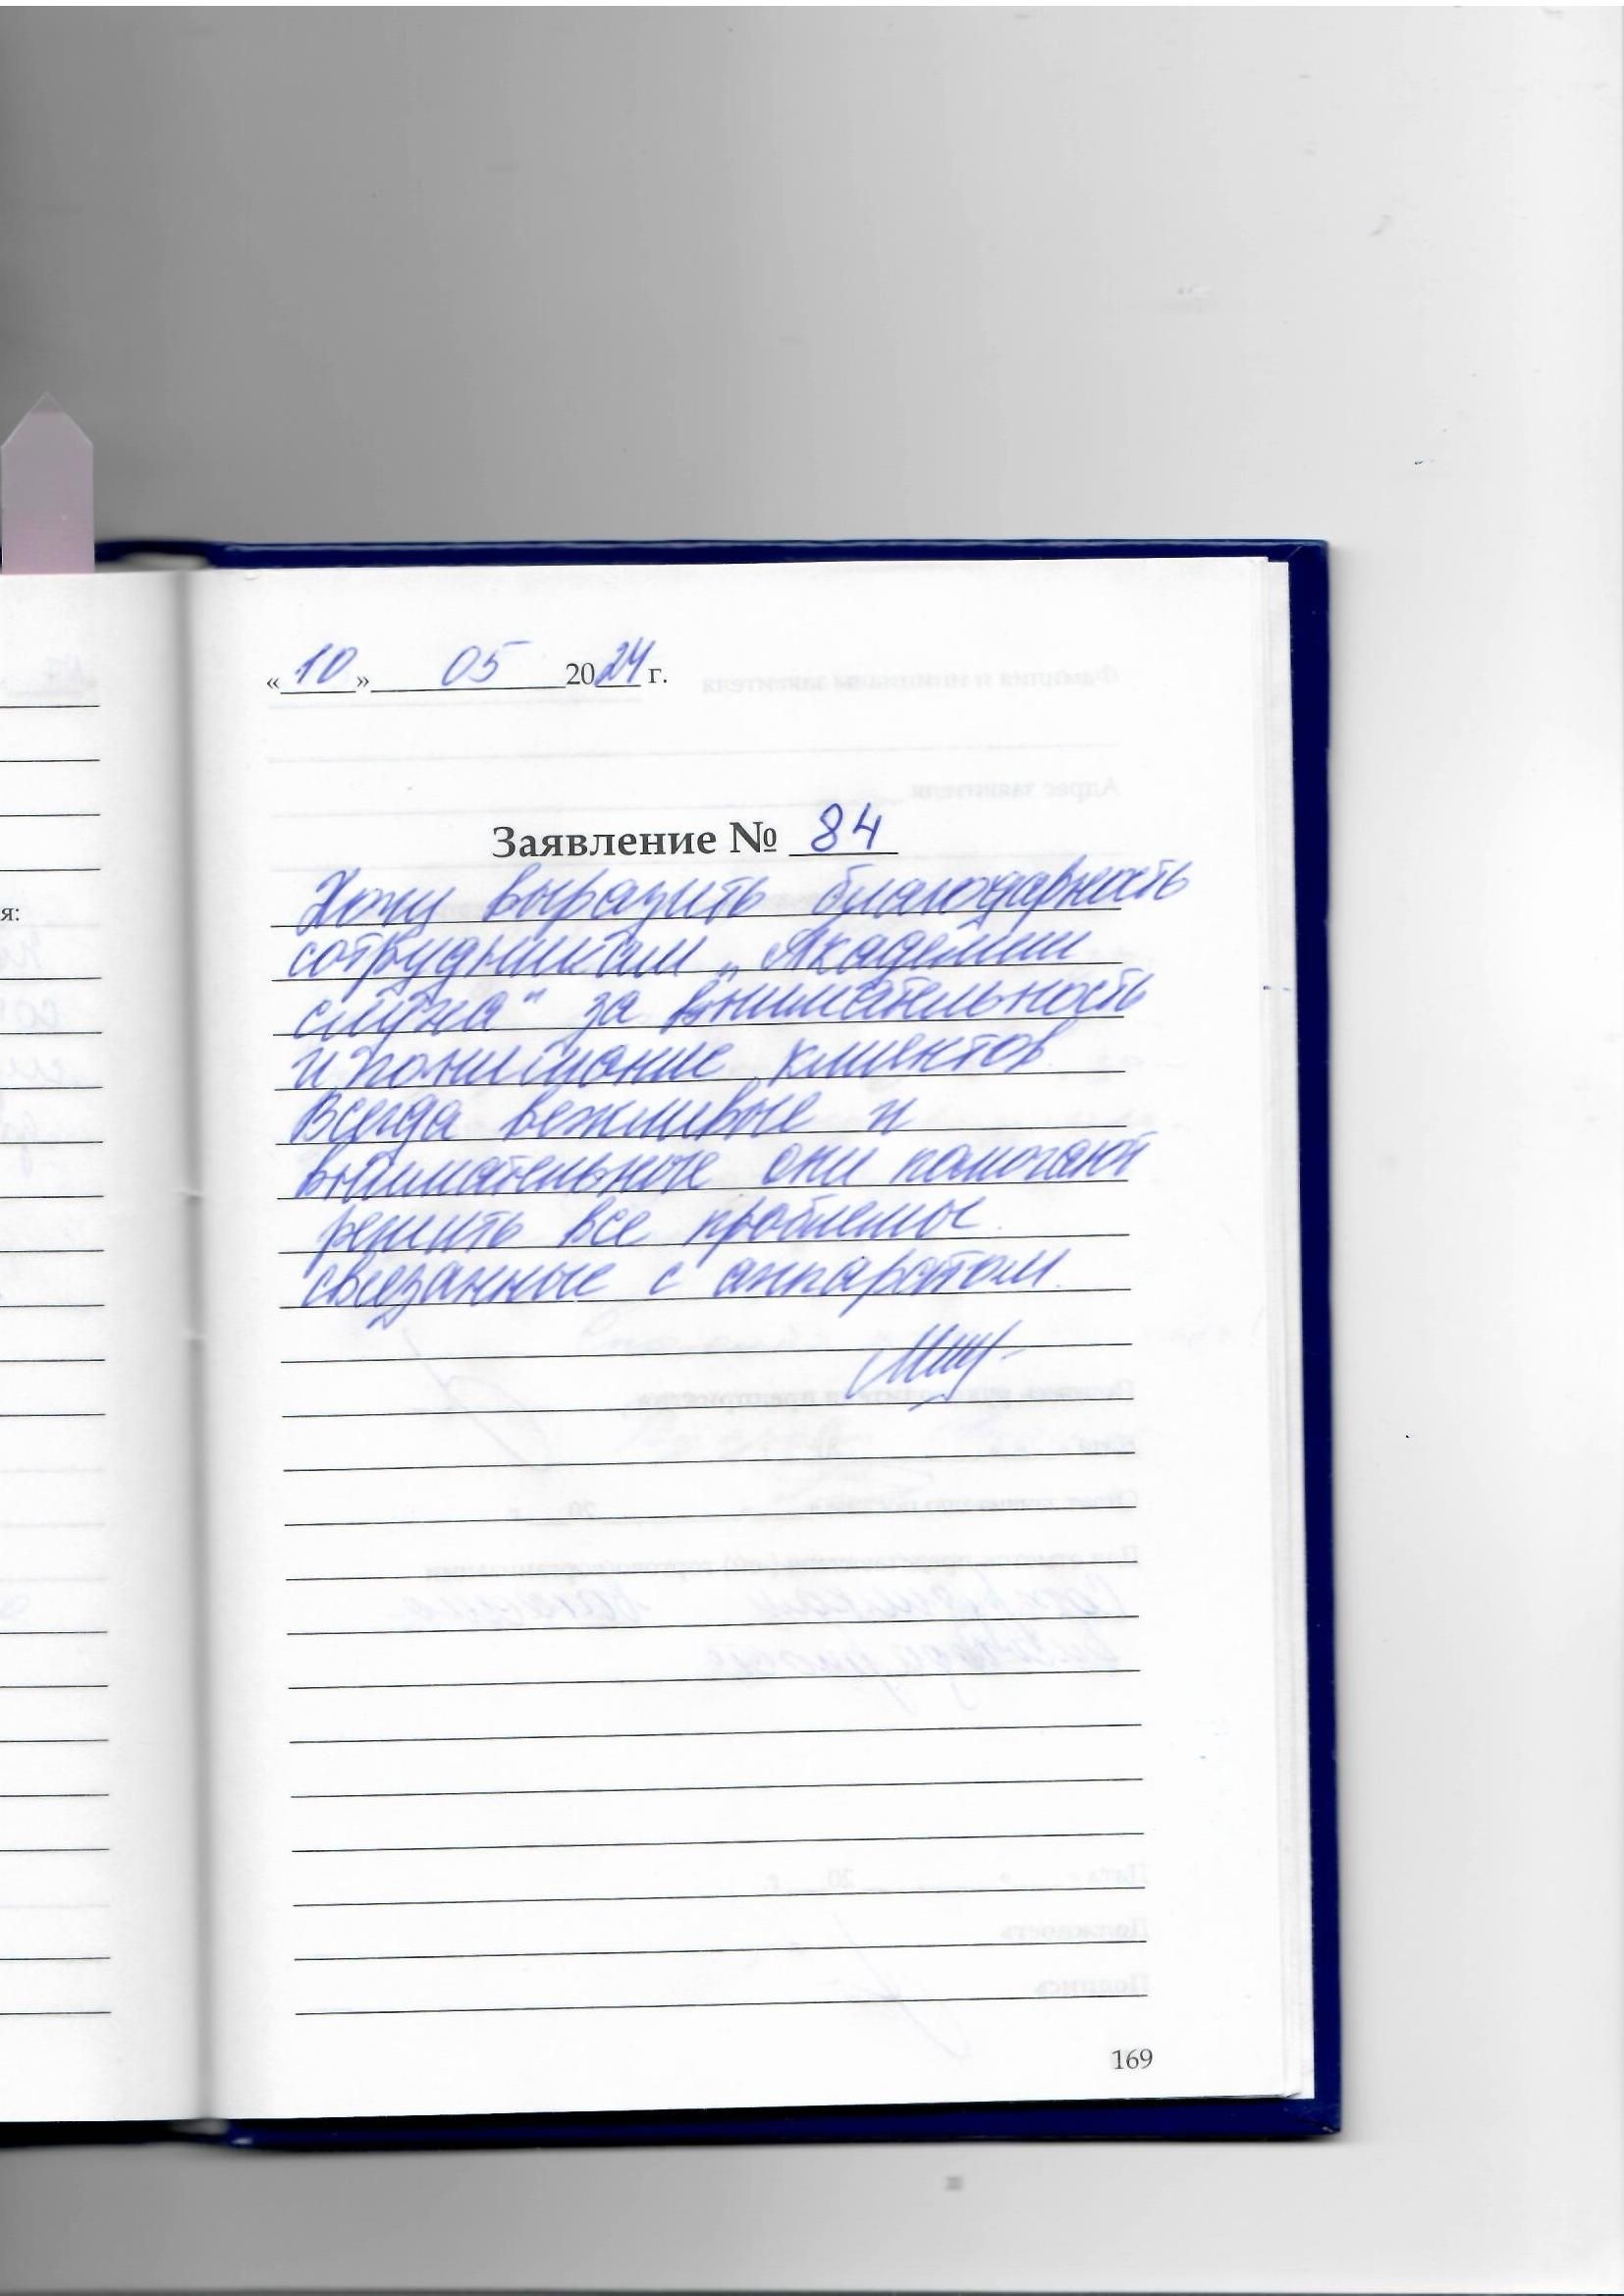 «10» 05 2024 г.
Заявление № 84
Хочу выразить благодарность
сотрудникам „Академии
слуха" за внимательность
и понимание клиентов
Всегда вежливые и
внимательные они помогают
решить все проблемы
связанные с аппаратом.
169
я: